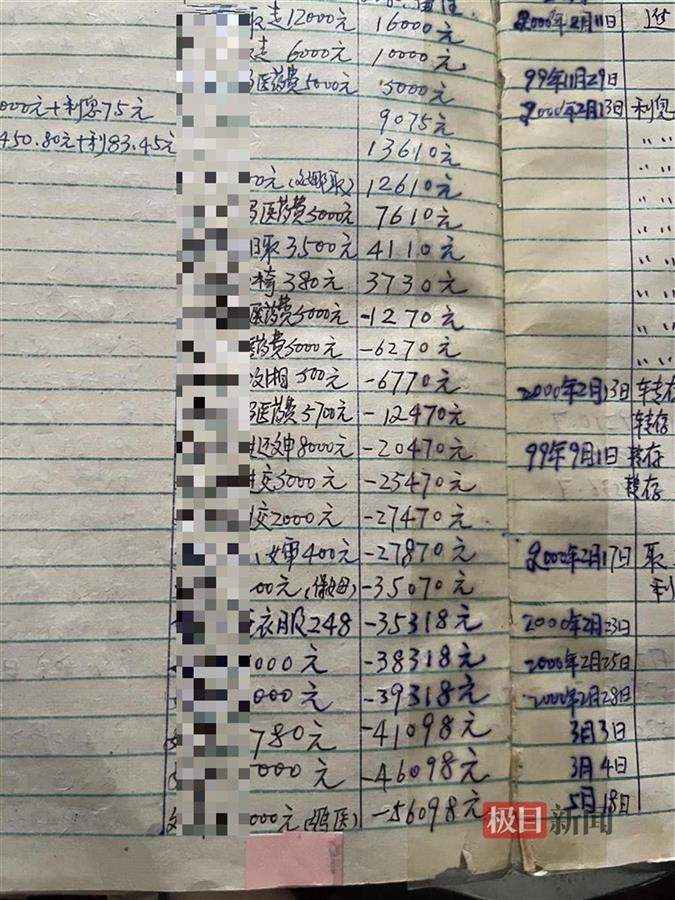 取走12000元 16000元 2000年2月11日
走 6000元 10000元
医药费5000元 5000元 99年11月29日
000元+利息75元 9075元 2000年2月13日 利息
450.80元+利83.45元 13610元 〃 〃
00元( 取) 12610元 〃 〃
医药费5000元 7610元 〃 〃
取3500元 4110元 〃 〃
椅380元 3730元 〃 〃
医药费5000元 -1270元 〃 〃
医药费5000元 -6270元 〃 〃
500元 -6770元 2000年2月13日 转存
医药费5700元 -12470元 转存
8000元 -20470元 99年9月1日 转存
交5000元 -25470元 转存
交2000元 -27470元
400元 -27870元 2000年2月17日 取
00元(保姆) -35070元 利
衣服248 -35318元 2000年2月23日
000元 -38318元 2000年2月25日
000元 -39318元 2000年2月28日
780元 -41098元 3月3日
000元 -46098元 3月4日
000元 -56098元 5月18日
极目新闻